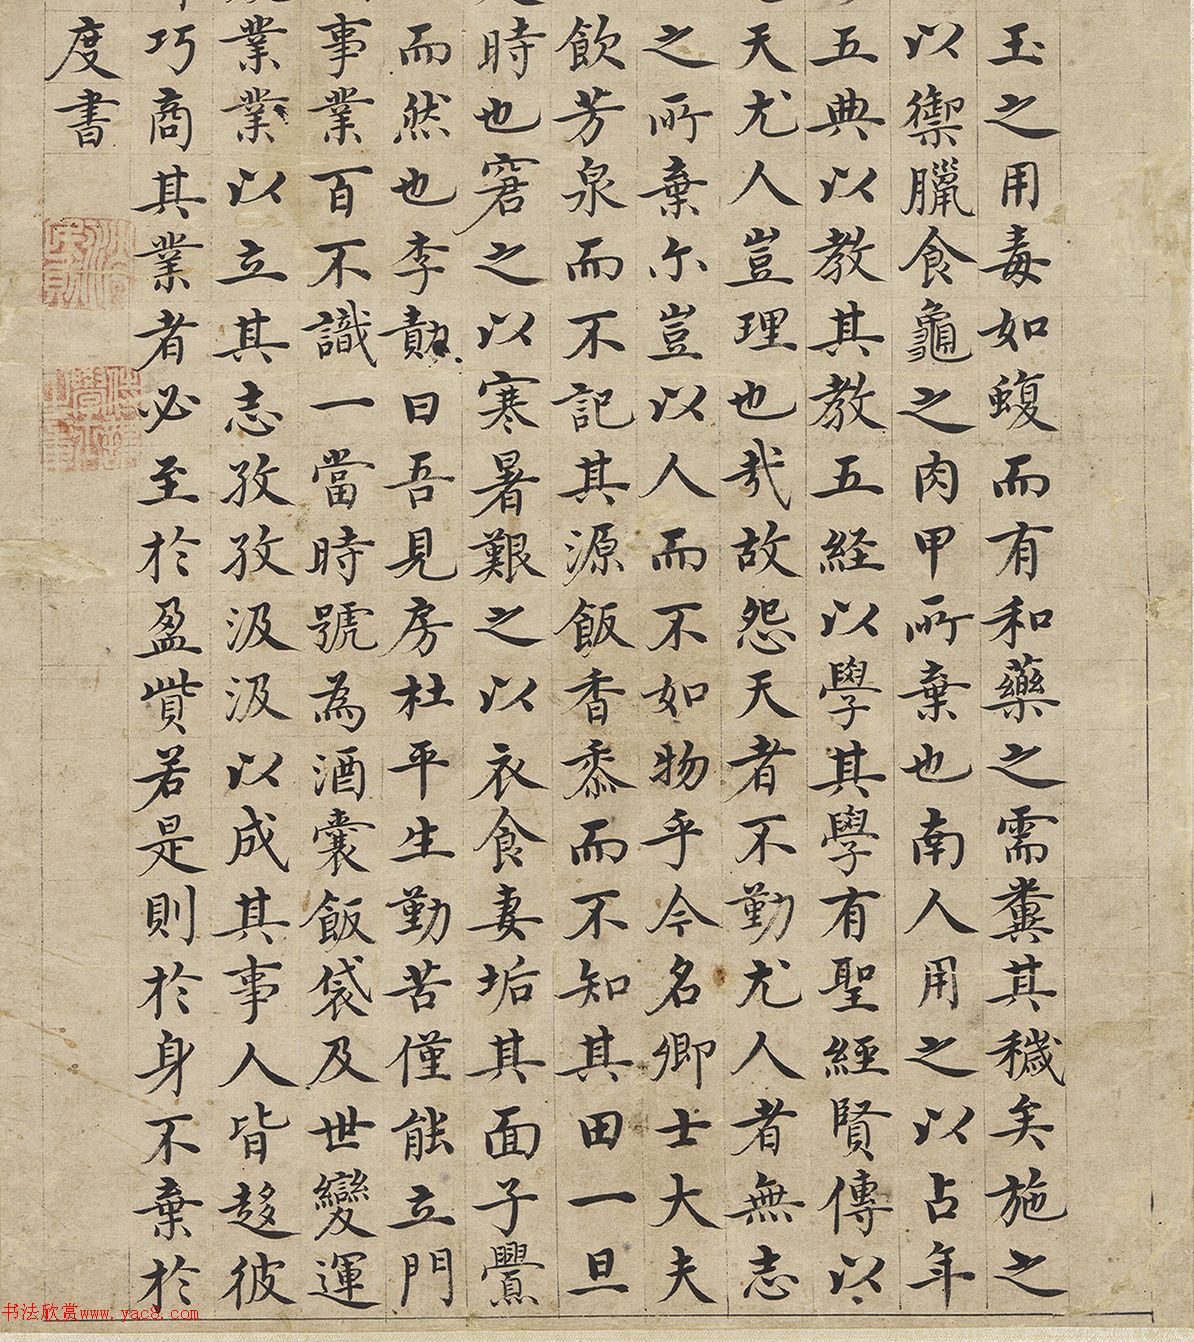 玉之用毒如蝮而有和藥之需糞其穢矣施之
以禦臘食龜之肉甲所棄也南人用之以占年
五典以教其教五経以學其學有聖經賢傳以
天尤人豈理也哉故怨天者不勤尤人者無志
之所棄尒豈以人而不如物乎今名卿士大夫
飲芳泉而不記其源飯香黍而不知其田一旦
時也窘之以寒暑艱之以衣食妻垢其面子
而然也李勣曰吾見房杜平生勤苦僅能立門
事業百不識一當時號為酒囊飯袋及世變運
業業以立其志孜孜汲汲以成其事人皆趍彼
巧商其業者必至於盈貲若是則於身不棄於
度書
书法欣赏www.yac8.com